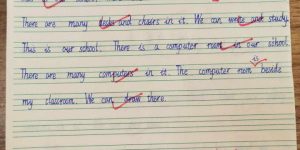 There are many desks and chairs in it. We can write and study.
This is our school. There is a computer room in our school.
There are many computers in it. The computer room is beside
my classroom. We can draw there.